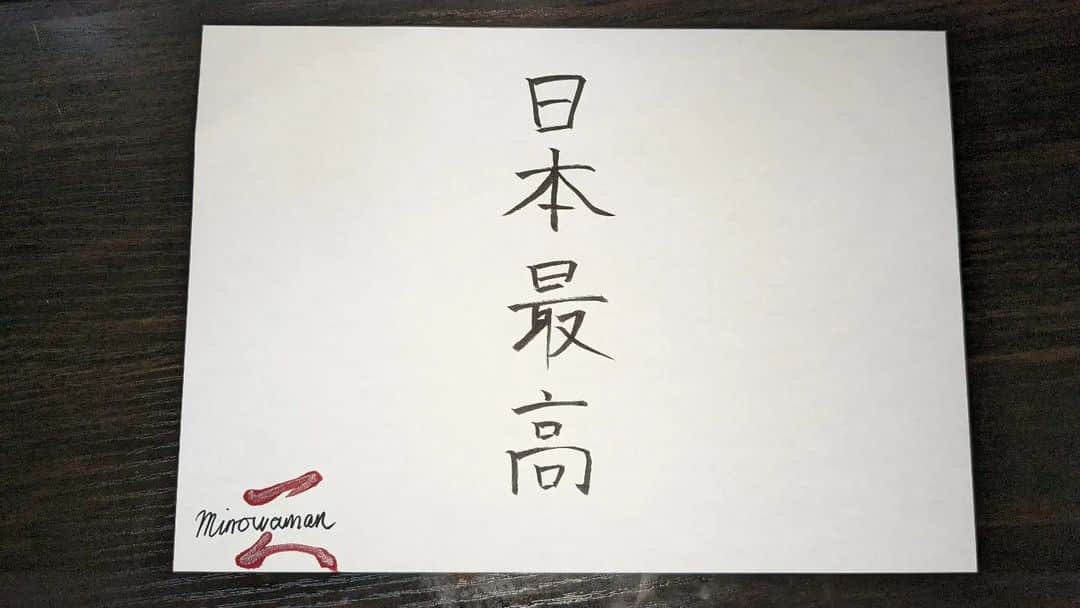 日本最高
Minowaman